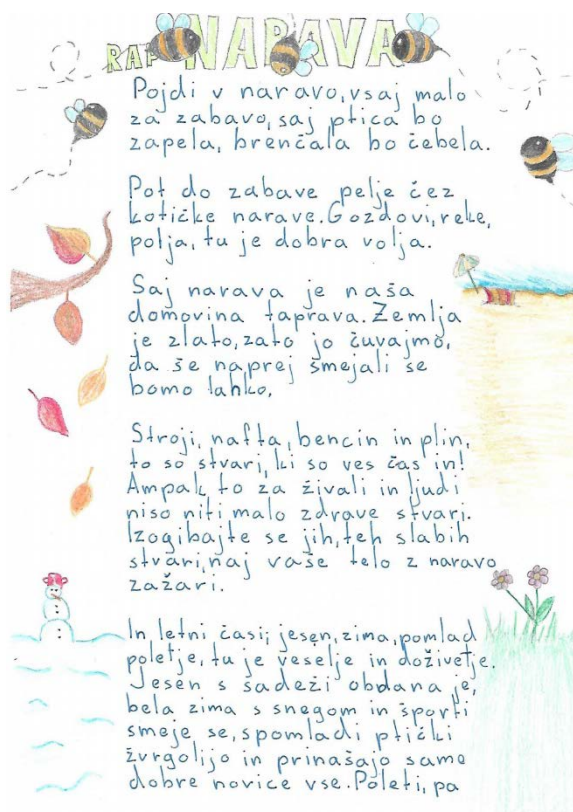 RAP NARAVA
Pojdi v naravo, vsaj malo
za zabavo, saj ptica bo
zapela, brenčala bo čebela.
Pot do zabave pelje čez
kotičke narave. Gozdovi, reke,
polja, tu je dobra volja.
Saj narava je naša
domovina taprava. Zemlja
je zlato, zato jo čuvajmo,
da še naprej smejali se
bomo lahko,
Stroji, nafta, bencin in plin,
to so stvari, ki so ves čas in!
Ampak to za živali in ljudi
niso niti malo zdrave stvari.
Izogibajte se jih, teh slabih
stvari, naj vaše telo z naravo
zažari.
In letni časi; jesen, zima, pomlad
poletje, tu je veselje in doživetje.
Jesen s sadeži obdana je,
bela zima s snegom in športi
smeje se, spomladi ptički
žvrgolijo in prinašajo samo
dobre novice vse. Poleti, pa